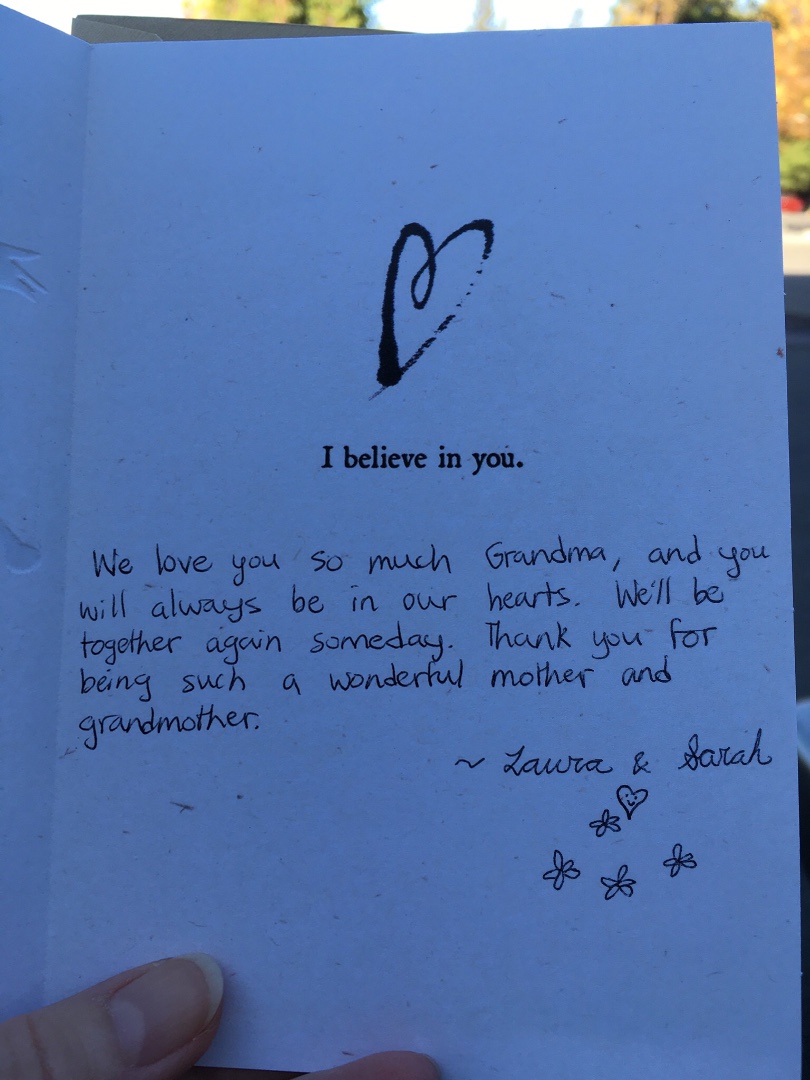 I believe in you.
We love you so much Grandma, and you
will always be in our hearts. We'll be
together again someday. Thank you for
being such a wonderful mother and
grandmother.
~ Laura & Sarah